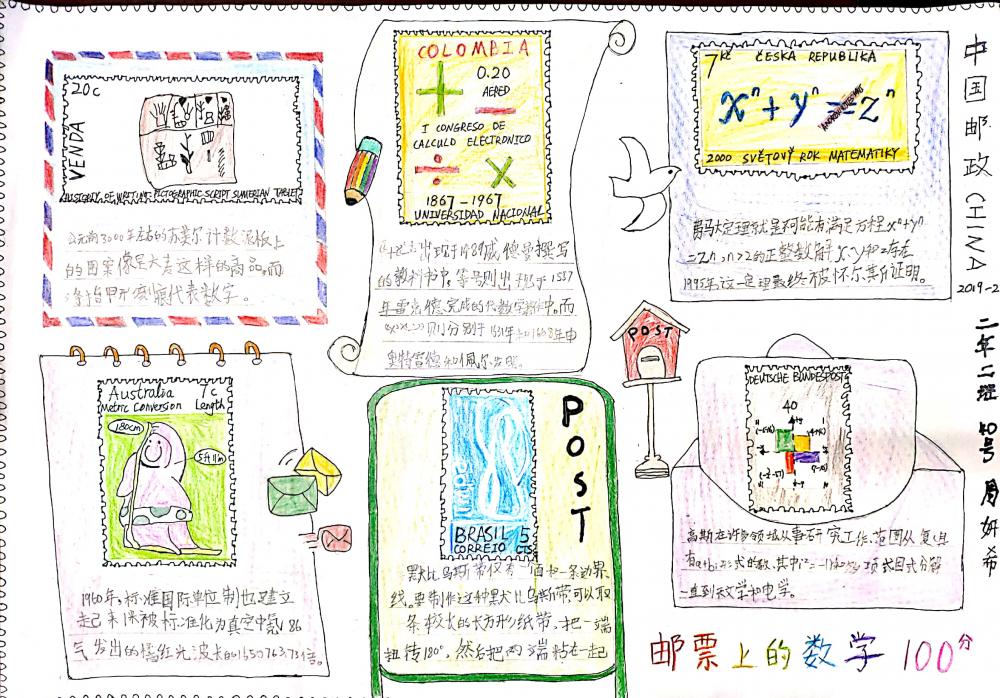 20c
VENDA
HISTORY OF WRITING PICTOGRAPHIC SCRIPT SUMERIAN TABLET
公元前3000年左右的苏美尔计数泥板上
的图案像是大麦这样的商品,而
代表数字。
COLOMBIA
0.20
AEREO
I CONGRESO DE
CALCULO ELECTRONICO
1867-1967
UNIVERSIDAD NACIONAL
出现于1489 德曼撰写
的教科书中,等号则出现于1557
年雷 德完成的代数学 中。而
则分别于1631年 1668年由
奥特雷德和佩尔发明。
7Kč ČESKA REPUBLIKA
xⁿ+yⁿ=zⁿ
2000 SVĚTOVÝ ROK MATEMATIKY
费马大定理就是 可能有满足方程xⁿ+yⁿ
=Zn,n>2的正整数解x、y和z存在
1995年这一定理最终被怀尔斯证明。
中国邮政(HINA
2019-2
Australia 1c
Metric Conversion Length
180cm
5ft11in
1960年,标准国际单位制也建立
起来 米被标准化为真空中氪86
气发出的橘红光波长的1650763.73倍。
impa
BRASIL 5
CORREIO CTS
POST
默比乌斯带仅有一面和一条边界
线。要制作这种默比乌斯带,可以取
一条较长的长方形纸带,把一端
扭转180°,然后把两端粘在一起
POST
DEUTSCHE BUNDESPOST
40
高斯在许多领域从事研究工作,范围从复
有a+bi形式的数,其中i²=-1) 项式因式分解
一直到天文学和电学。
二年二班 40号 周妍希
邮票上的数学 100分